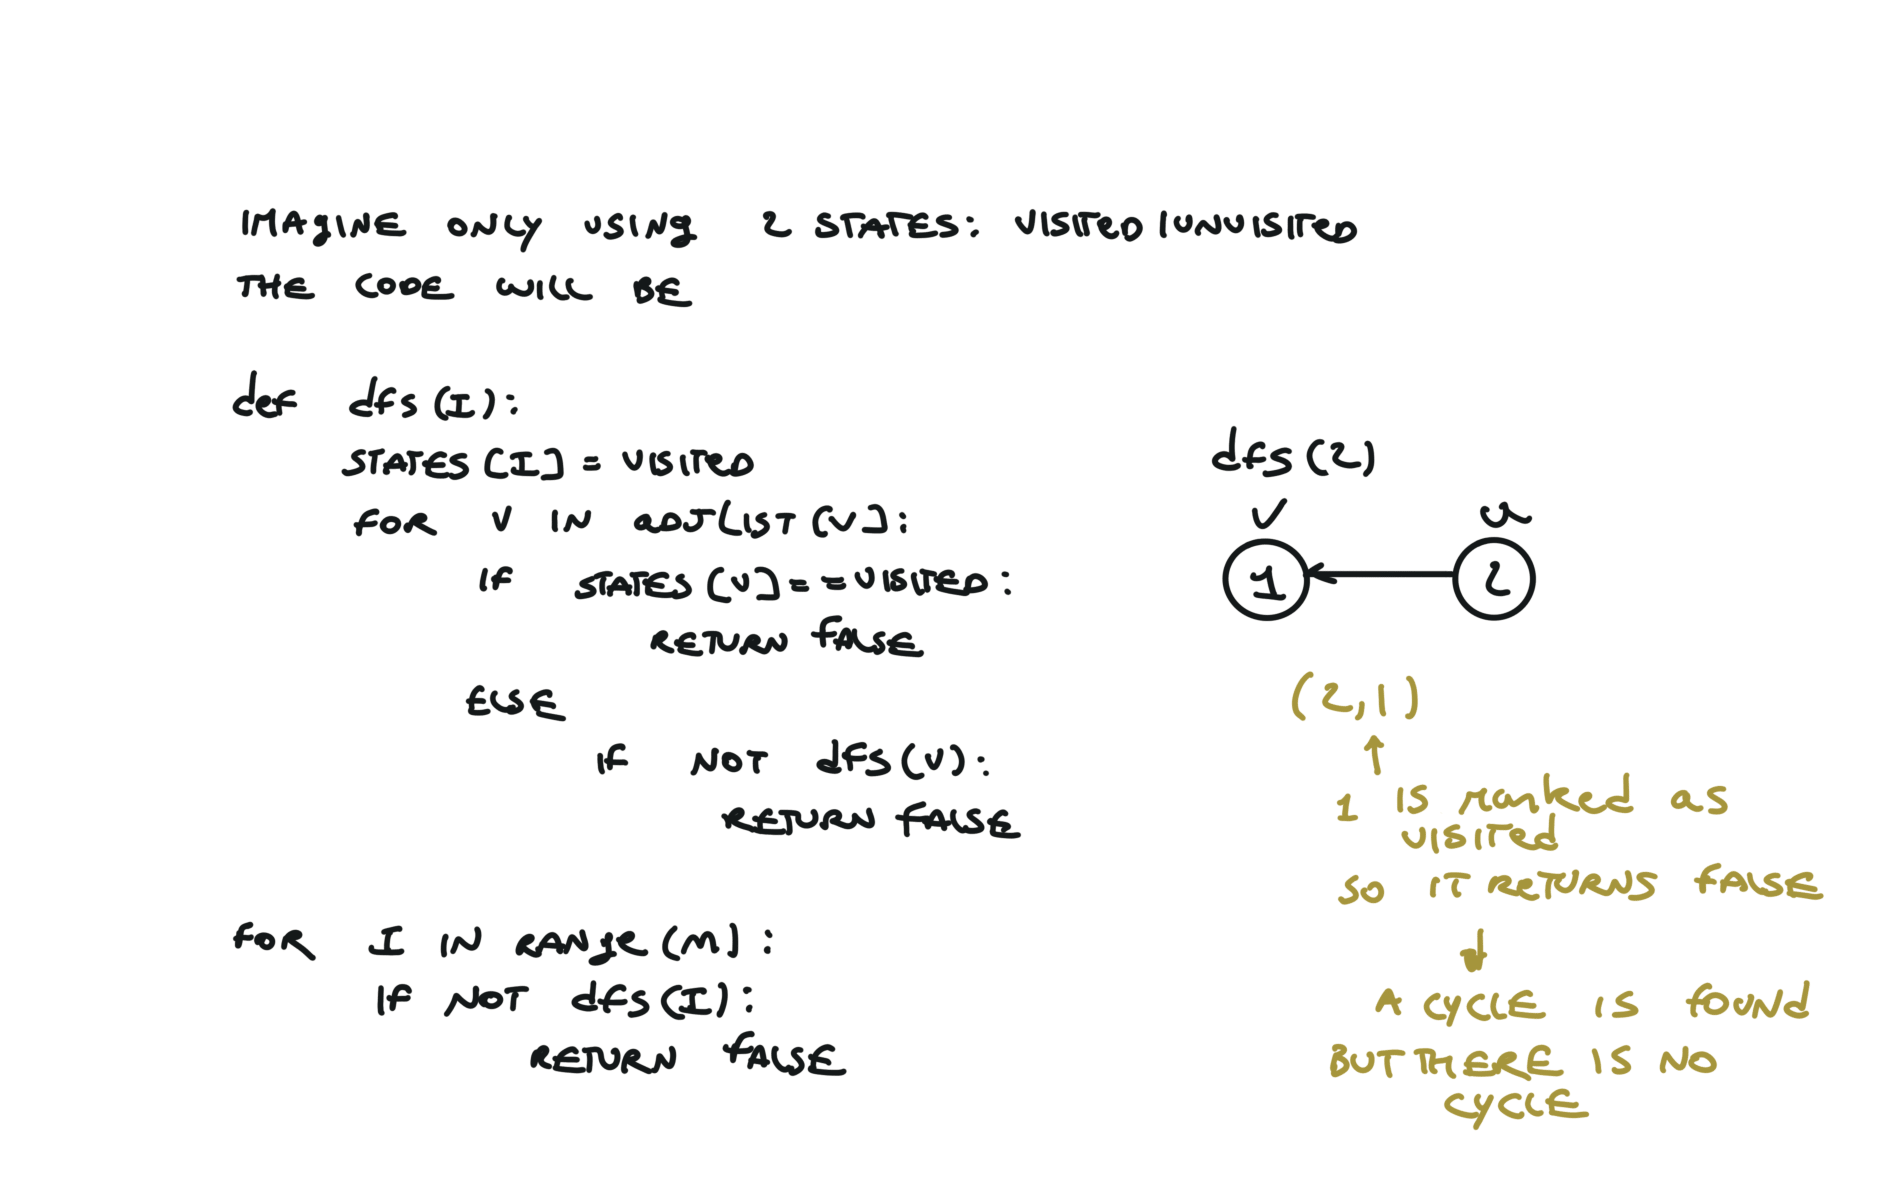 IMAGINE ONLY USING 2 STATES: VISITED/UNVISITED
THE CODE WILL BE
def dfs(I):
STATES[I] = VISITED
FOR V IN ADJLIST[V]:
IF STATES[V]==VISITED:
RETURN FALSE
ELSE
IF NOT dfs(V):
RETURN FALSE
FOR I IN RANGE(M):
IF NOT dfs(I):
RETURN FALSE
dfs(2)
V u
1 2
(2,1)
1 IS marked as
VISITED
SO IT RETURNS FALSE
A CYCLE IS FOUND
BUT THERE IS NO
CYCLE